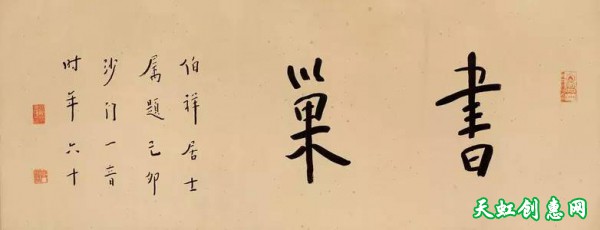 書巢
伯祥居士
属题己卯
沙门一音
时年六十
天虹创惠网